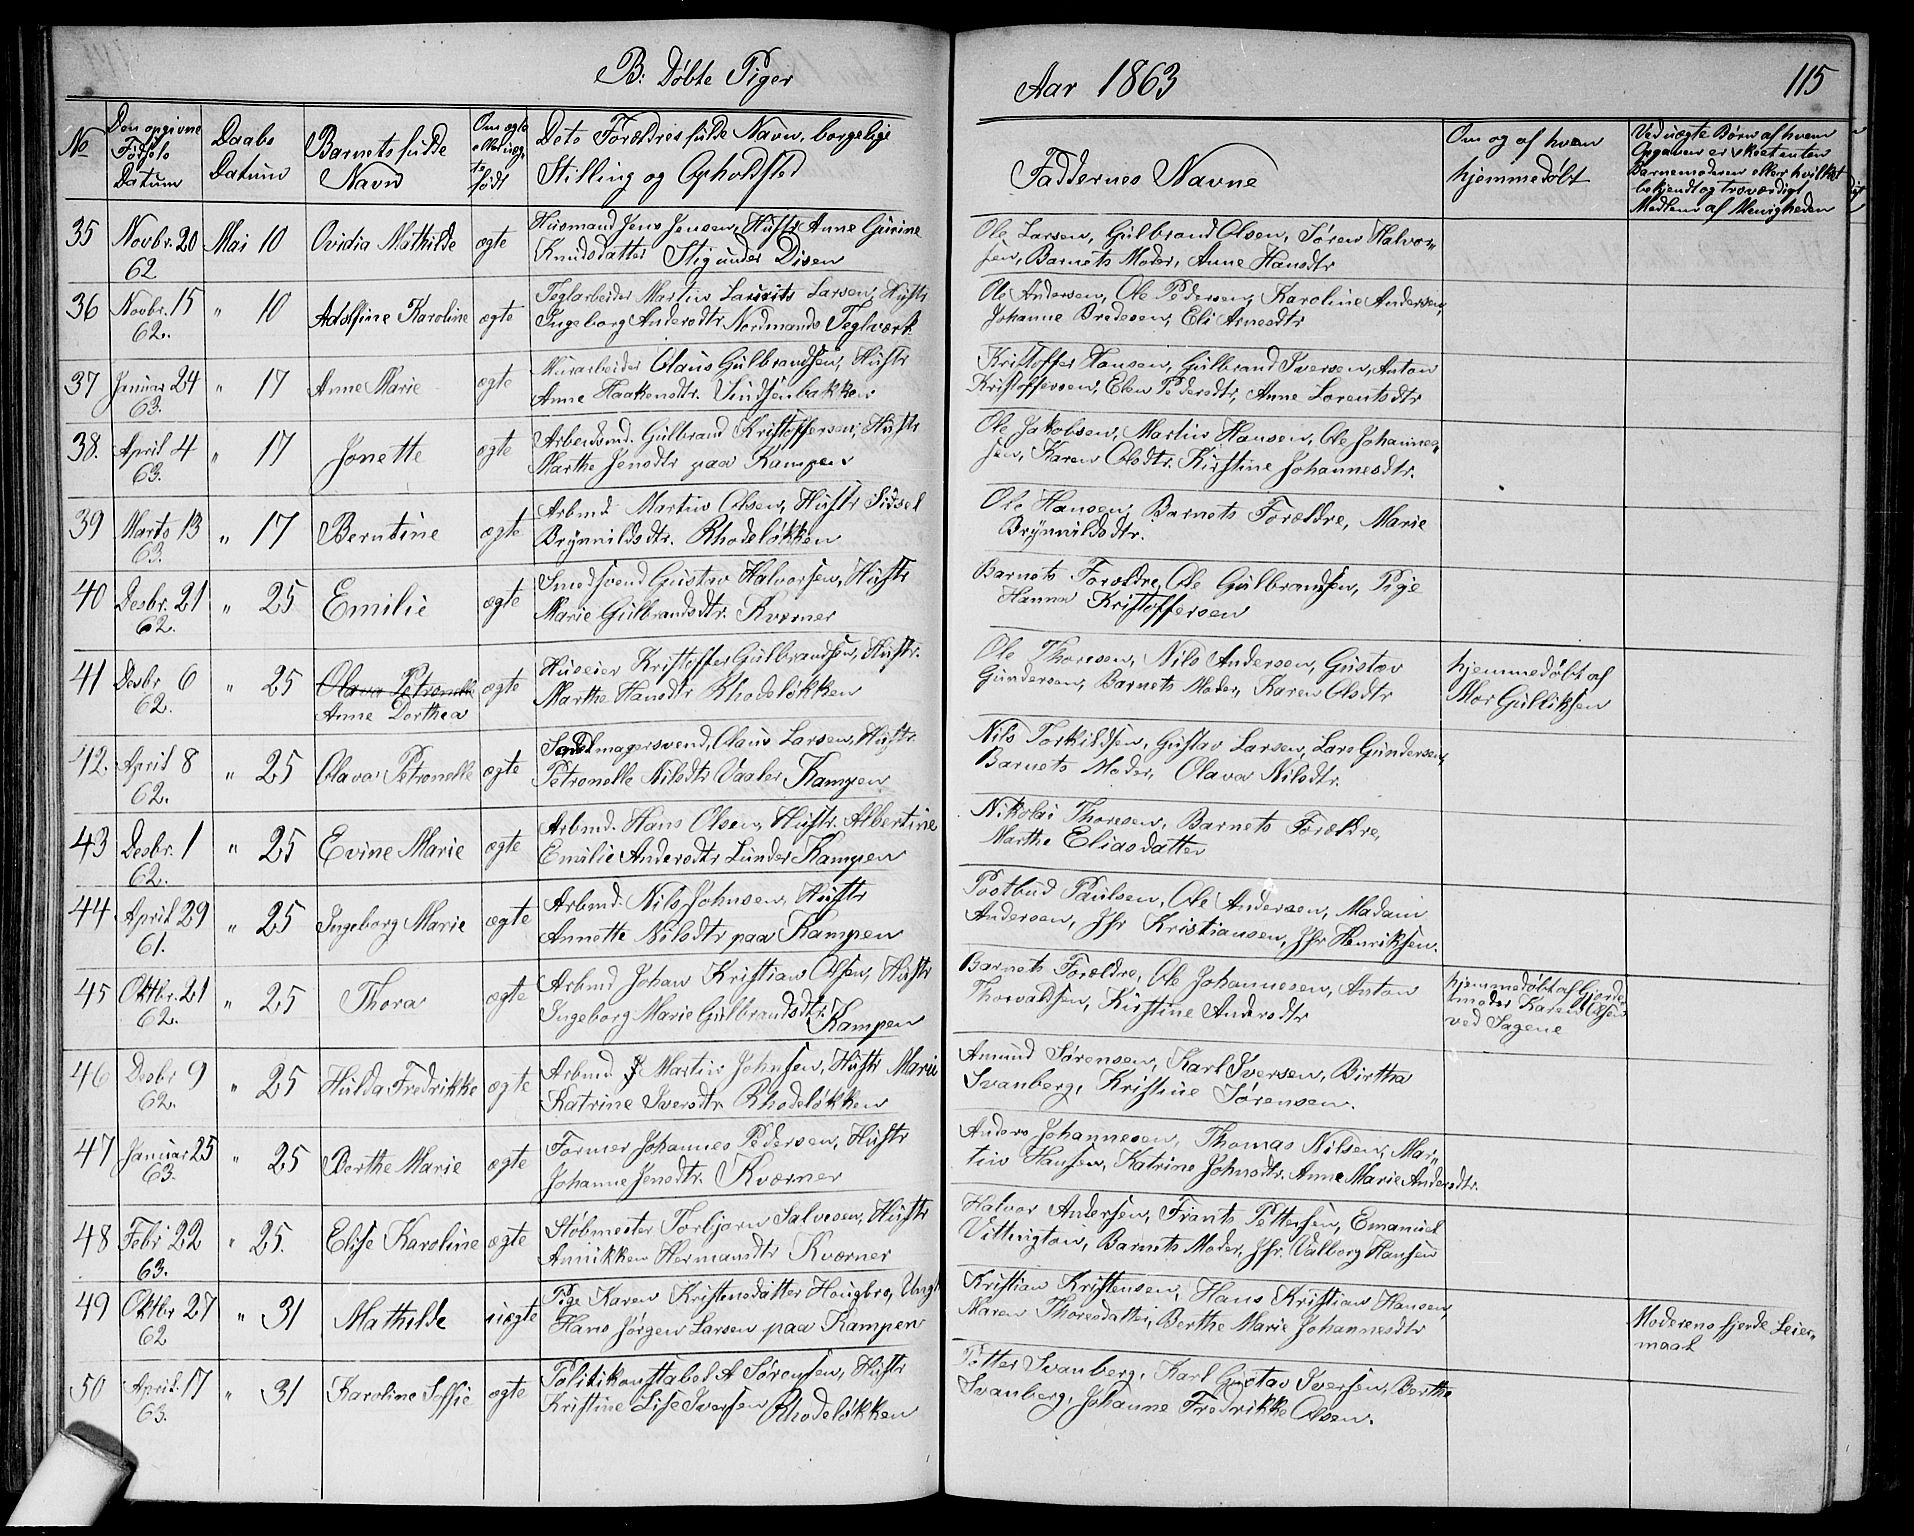 B: Døbte Piger
Aar 1863
115
No
Den opgivne Fødsels Datum
Daabs Datum
Barnets fulde Navn
Om ægte eller uægte født
Dets Forældres fulde Navn, borgelige Stilling og Opholdsted
Faddernes Navne
Om og af hvem hjemmedøbt
Ved uægte Børn af hvem Opgaven er skeet enten Barnemoderen eller hvilket bekjendt og troværdigt Medlem af Menigheden
35 Novbr. 20 62 Mai 10 Ovidia Mathilde ægte Husmand Jens Jensen, Hustr Anne Gurine
Knudsdatter Stig under Disen
Ole Larsen, Gulbrand Olsen, Søren Halvor„
sen, Barnets Moder, Anne Hansdtr
36 Novbr. 15 62. „ 10 Adolfine Karoline ægte Teglarbeider Martin Laurits Larsen, Hustr
Ingeborg Andersdtr Nordmands Teglværk
Ole Andersen, Ole Pedersen, Karoline Andersen,
Johanne Bredesen, Eli Arnesdtr
37 Januar 24 63. „ 17 Anne Marie ægte Murarbeider Olaus Gulbrandsen, Hustr
Anne Haakensdtr. Vindsenbakken
Kristoffer Hansen, Gulbrand Iversen, Anton
Kristoffersen, Elen Pedersdtr, Anne Lorentsdtr
38. April 4 63. „ 17 Jonette ægte Arbeidsmd. Gulbrand Kristoffersen, Hustr
Marthe Jensdtr paa Kampen
Ole Jakobsen, Martin Hansen, Ole Johannes„
sen, Karen Olsdtr. Kirstine Johannesdtr.
39 Marts 13 63. „ 17 Berntine ægte Arbmd. Martin Olsen, Hustr Sissel
Brynnildsdtr. Rhodeløkken
Ole Hansen, Barnets Forældre, Marie
Brynnildsdtr.
40 Desbr. 21 62. „ 25 Emilie ægte Smedsvend Gustav Halvorsen, Hustr
Marie Gulbrandsdtr. Kværner
Barnets Forældre, Ole Gulbrandsen, Pige
Hanna Kristoffersen
41 Desbr 6 62. „ 25 Olava Petronelle
Anne Dorthea ægte Huseier Kristoffer Gulbrandsen, Hustr.
Marthe Hansdtr Rhodeløkken
Ole Thoresen, Nils Andersen, Gustav
Gundersen, Barnets Moder, Karen Olsdtr
hjemmedøbt af
Mor Gulliksen
42. April 8 62. „ 25 Olava Petronelle ægte Sadelmagersvend, Olaus Larsen, Hustr
Petronelle Nilsdtr Vaaler Kampen
Nils Torkildsen, Gustav Larsen, Lars Gundersen,
Barnets Moder, Olava Nilsdtr.
43 Desbr. 1 62. „ 25 Evine Marie ægte Arbmd. Hans Olsen, Hustr. Albertine
Emilie Andersdtr Lunder Kampen
Nikolai Thoresen, Barnets Forældre,
Marthe Eliasdatter
44 April 29 61. „ 25 Ingeborg Marie ægte Arbmd. Nils Johnsen, Hustr
Annette Nilsdtr paa Kampen
Postbud Paulsen, Ole Andersen, Madam
Andersen, Jfr Kristiansen, Jfr Henriksen.
45 Oktbr. 21 62. „ 25 Thora ægte Arbmd Johan Kristian Olsen, Hustr
Ingeborg Marie Gulbrandsdtr.
Kampen
Barnets Forældre, Ole Johannesen, Anton
Thorvaldsen, Kirstine Andersdtr
hjemmedøbt af Gjorde
moder Karen Olsen
ved Sagene
46 Desbr 9 62. „ 25 Hulda Fredrikke ægte Arbmd Martin Johnsen, Hustr Marie
Katrine Iversdtr. Rhodeløkken
Amund Sørensen, Karl Iversen, Birtha
Svanberg, Kristine Sørensen.
47 Januar 25 63. „ 25 Berthe Marie ægte Former Johannes Pedersen, Hustr
Johanne Jensdtr. Kværner
Anders Johannesen, Thomas Nilsen, Mar„
tin Hansen, Katrine Johnsdtr. Anne Marie Andersdtr.
48 Febr 22 63. „ 25. Elise Karoline ægte Støbmester Torbjørn Salvesen, Hustr
Annikken Hermansdtr Kværner
Halvor Andersen, Frants Pettersen, Emanuel
Vittington, Barnets Moder, Jfr. Valborg Hansen
49 Oktbr 27 62 „ 31 Mathilde uægte Pige Karen Kristensdatter Hougbro, Ungk
Hans Jørgen Larsen paa Kampen
Kristian Kristensen, Hans Kristian Hansen,
Maren Thoresdatter, Berthe Marie Johannesdtr
Moderens fjerde Leier„
maal
50 April. 17 63. „ 31 Karoline Soffie ægte Politikonstabel A Sørensen, Hustr
Kristine Lise Iversen Rhodeløkken
Petter Svanberg, Karl Gustav Iversen, Berthe
Svanberg, Johanne Fredrikke Olsen.